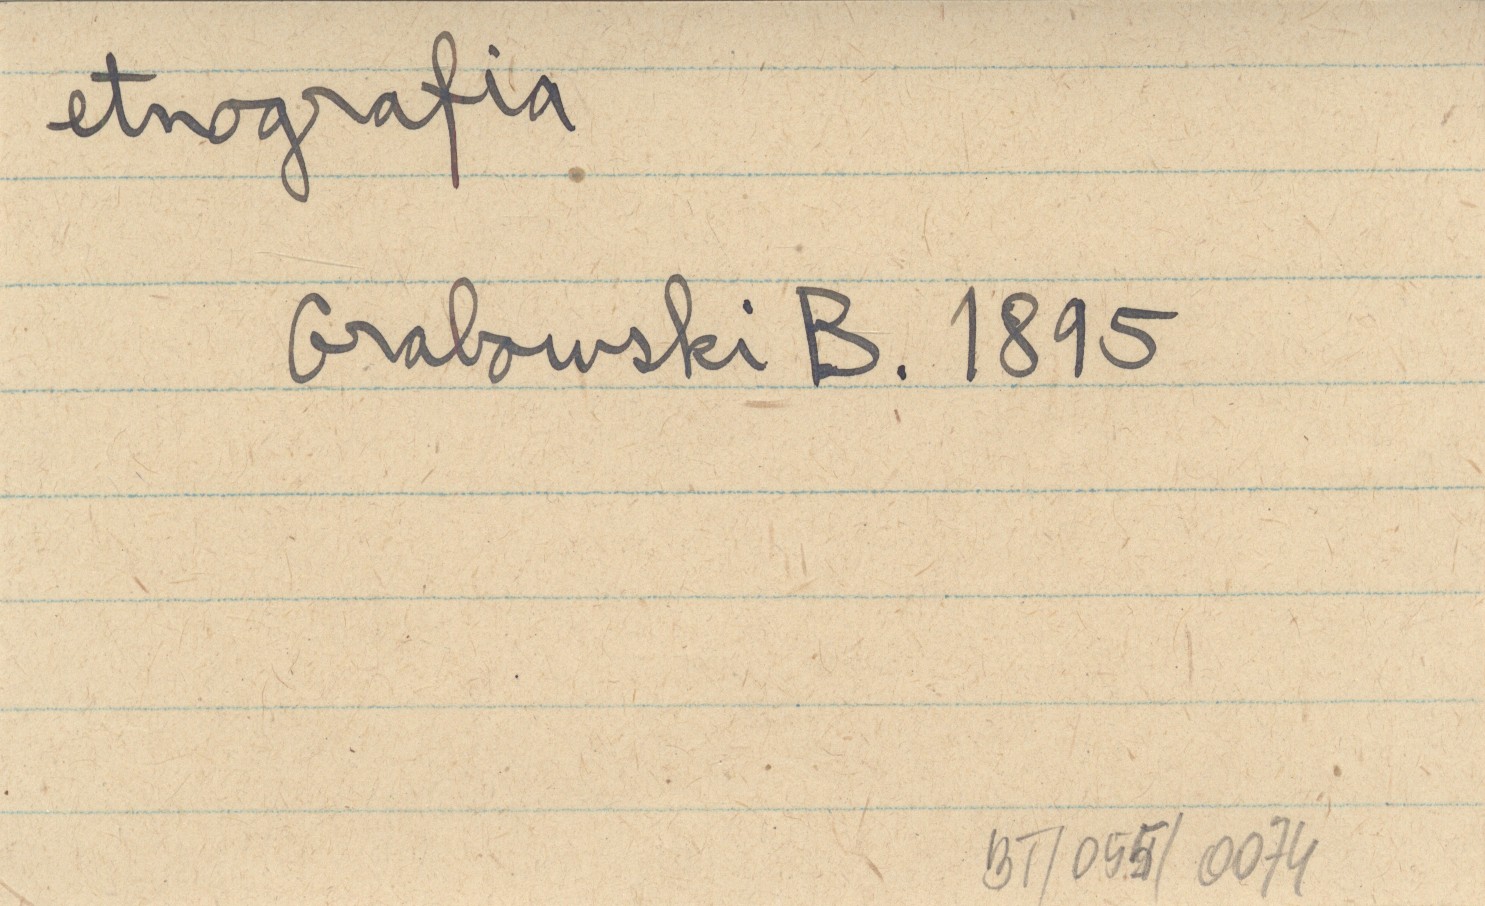 etnografia
Grabowski B. 1895
BT/055/0074